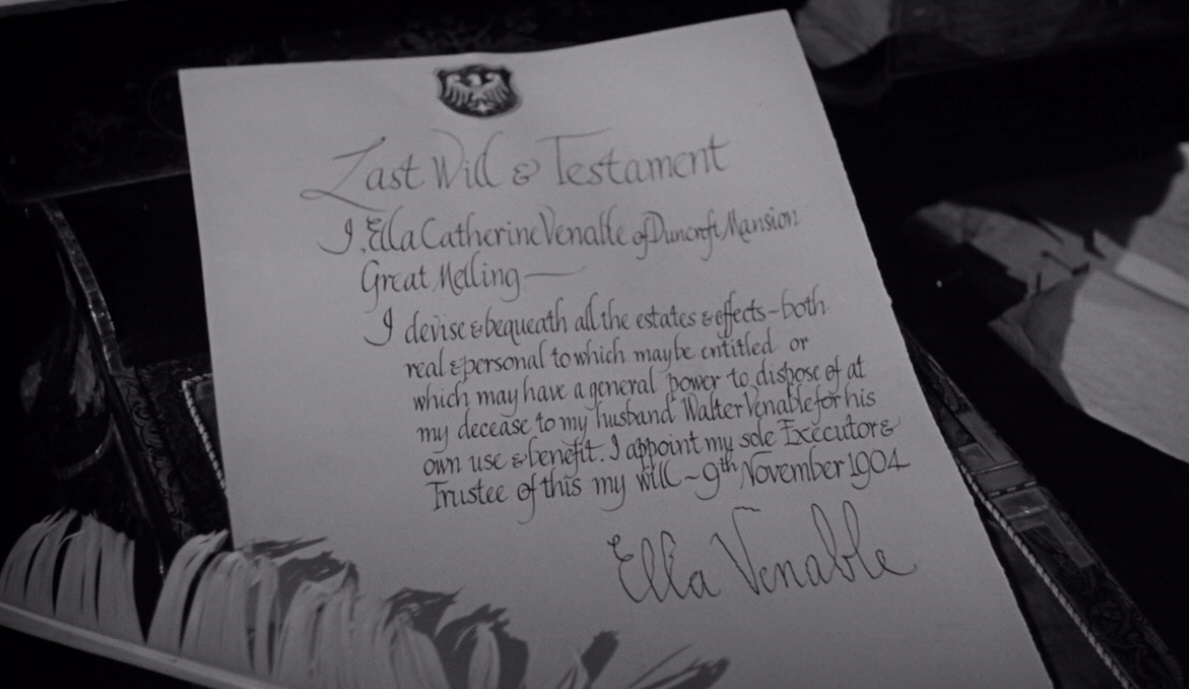 Last Will & Testament
I, Ella Catherine Venable of Duncroft Mansion
Great Melling —
I devise & bequeath all the estates & effects – both
real & personal to which may be entitled or
which may have a general power to dispose of at
my decease to my husband Walter Venable for his
own use & benefit. I appoint my sole Executor &
Trustee of this my will ~ 9th November 1904
Ella Venable